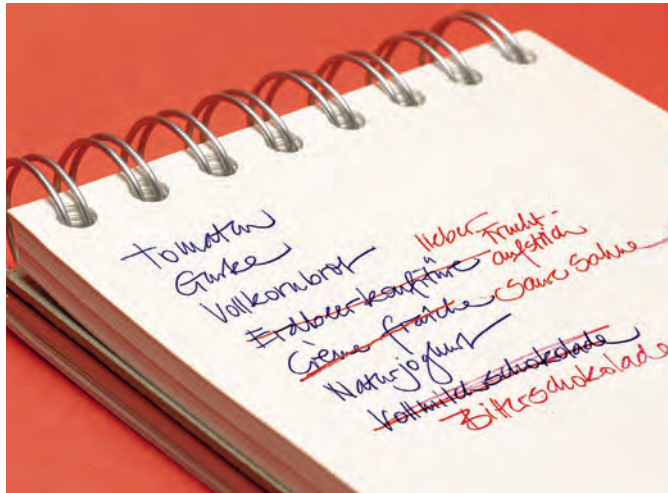 Tomaten
Gurke
Vollkornbrot
Erdbeerkonfitüre lieber Frucht-
aufstrich
Crème fraîche saure Sahne
Naturjoghurt
Vollmilchschokolade
Bitterschokolade